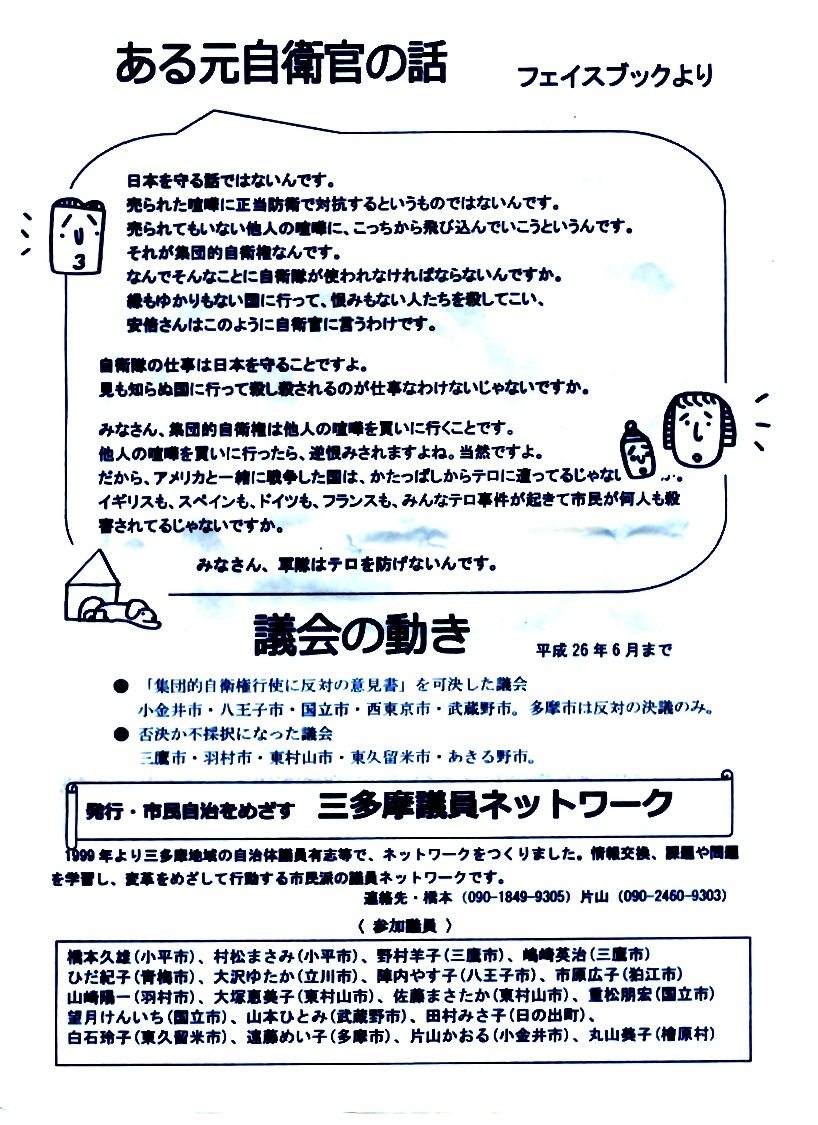 ある元自衛官の話　フェイスブックより
日本を守る話ではないんです。
売られた喧嘩に正当防衛で対抗するというものではないんです。
売られてもいない他人の喧嘩に、こっちから飛び込んでいこうというんです。
それが集団的自衛権なんです。
なんでそんなことに自衛隊が使われなければならないんですか。
縁もゆかりもない国に行って、恨みもない人たちを殺してこい、
安倍さんはこのように自衛官に言うわけです。
自衛隊の仕事は日本を守ることですよ。
見も知らぬ国に行って殺し殺されるのが仕事なわけないじゃないですか。
みなさん、集団的自衛権は他人の喧嘩を買いに行くことです。
他人の喧嘩を買いに行ったら、逆恨みされますよね。当然ですよ。
だから、アメリカと一緒に戦争した国は、かたっぱしからテロに遭ってるじゃない か。
イギリスも、スペインも、ドイツも、フランスも、みんなテロ事件が起きて市民が何人も殺
害されてるじゃないですか。
みなさん、軍隊はテロを防げないんです。
議会の動き　平成26年6月まで
● 「集団的自衛権行使に反対の意見書」を可決した議会
小金井市・八王子市・国立市・西東京市・武蔵野市。多摩市は反対の決議のみ。
● 否決か不採択になった議会
三鷹市・羽村市・東村山市・東久留米市・あきる野市。
発行・市民自治をめざす　三多摩議員ネットワーク
1999年より三多摩地域の自治体議員有志等で、ネットワークをつくりました。情報交換、課題や問題
を学習し、変革をめざして行動する市民派の議員ネットワークです。
連絡先・橋本（090-1849-9305）片山（090-2460-9303）
〈 参加議員 〉
橋本久雄(小平市)、村松まさみ(小平市)、野村羊子(三鷹市)、嶋﨑英治(三鷹市)
ひだ紀子(青梅市)、大沢ゆたか(立川市)、陣内やす子(八王子市)、市原広子(狛江市)
山﨑陽一(羽村市)、大塚恵美子(東村山市)、佐藤まさたか(東村山市)、重松朋宏(国立市)
望月けんいち(国立市)、山本ひとみ(武蔵野市)、田村みさ子(日の出町)、
白石玲子(東久留米市)、遠藤めい子(多摩市)、片山かおる(小金井市)、丸山美子(檜原村)